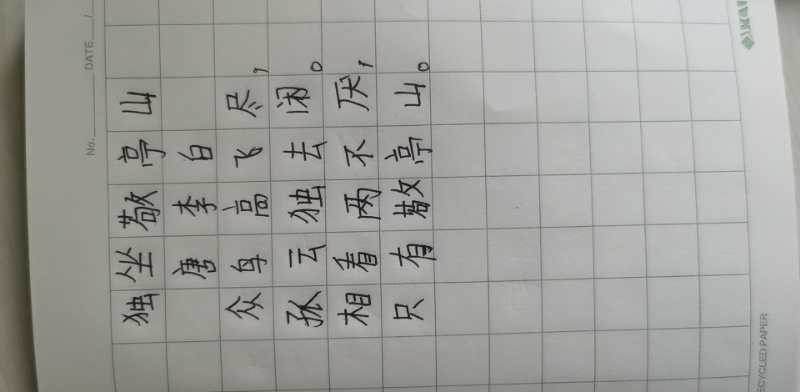 No. DATE /
独坐敬亭山
唐李白
众鸟高飞尽，
孤云独去闲。
相看两不厌，
只有敬亭山。
ECYCLED PAPER